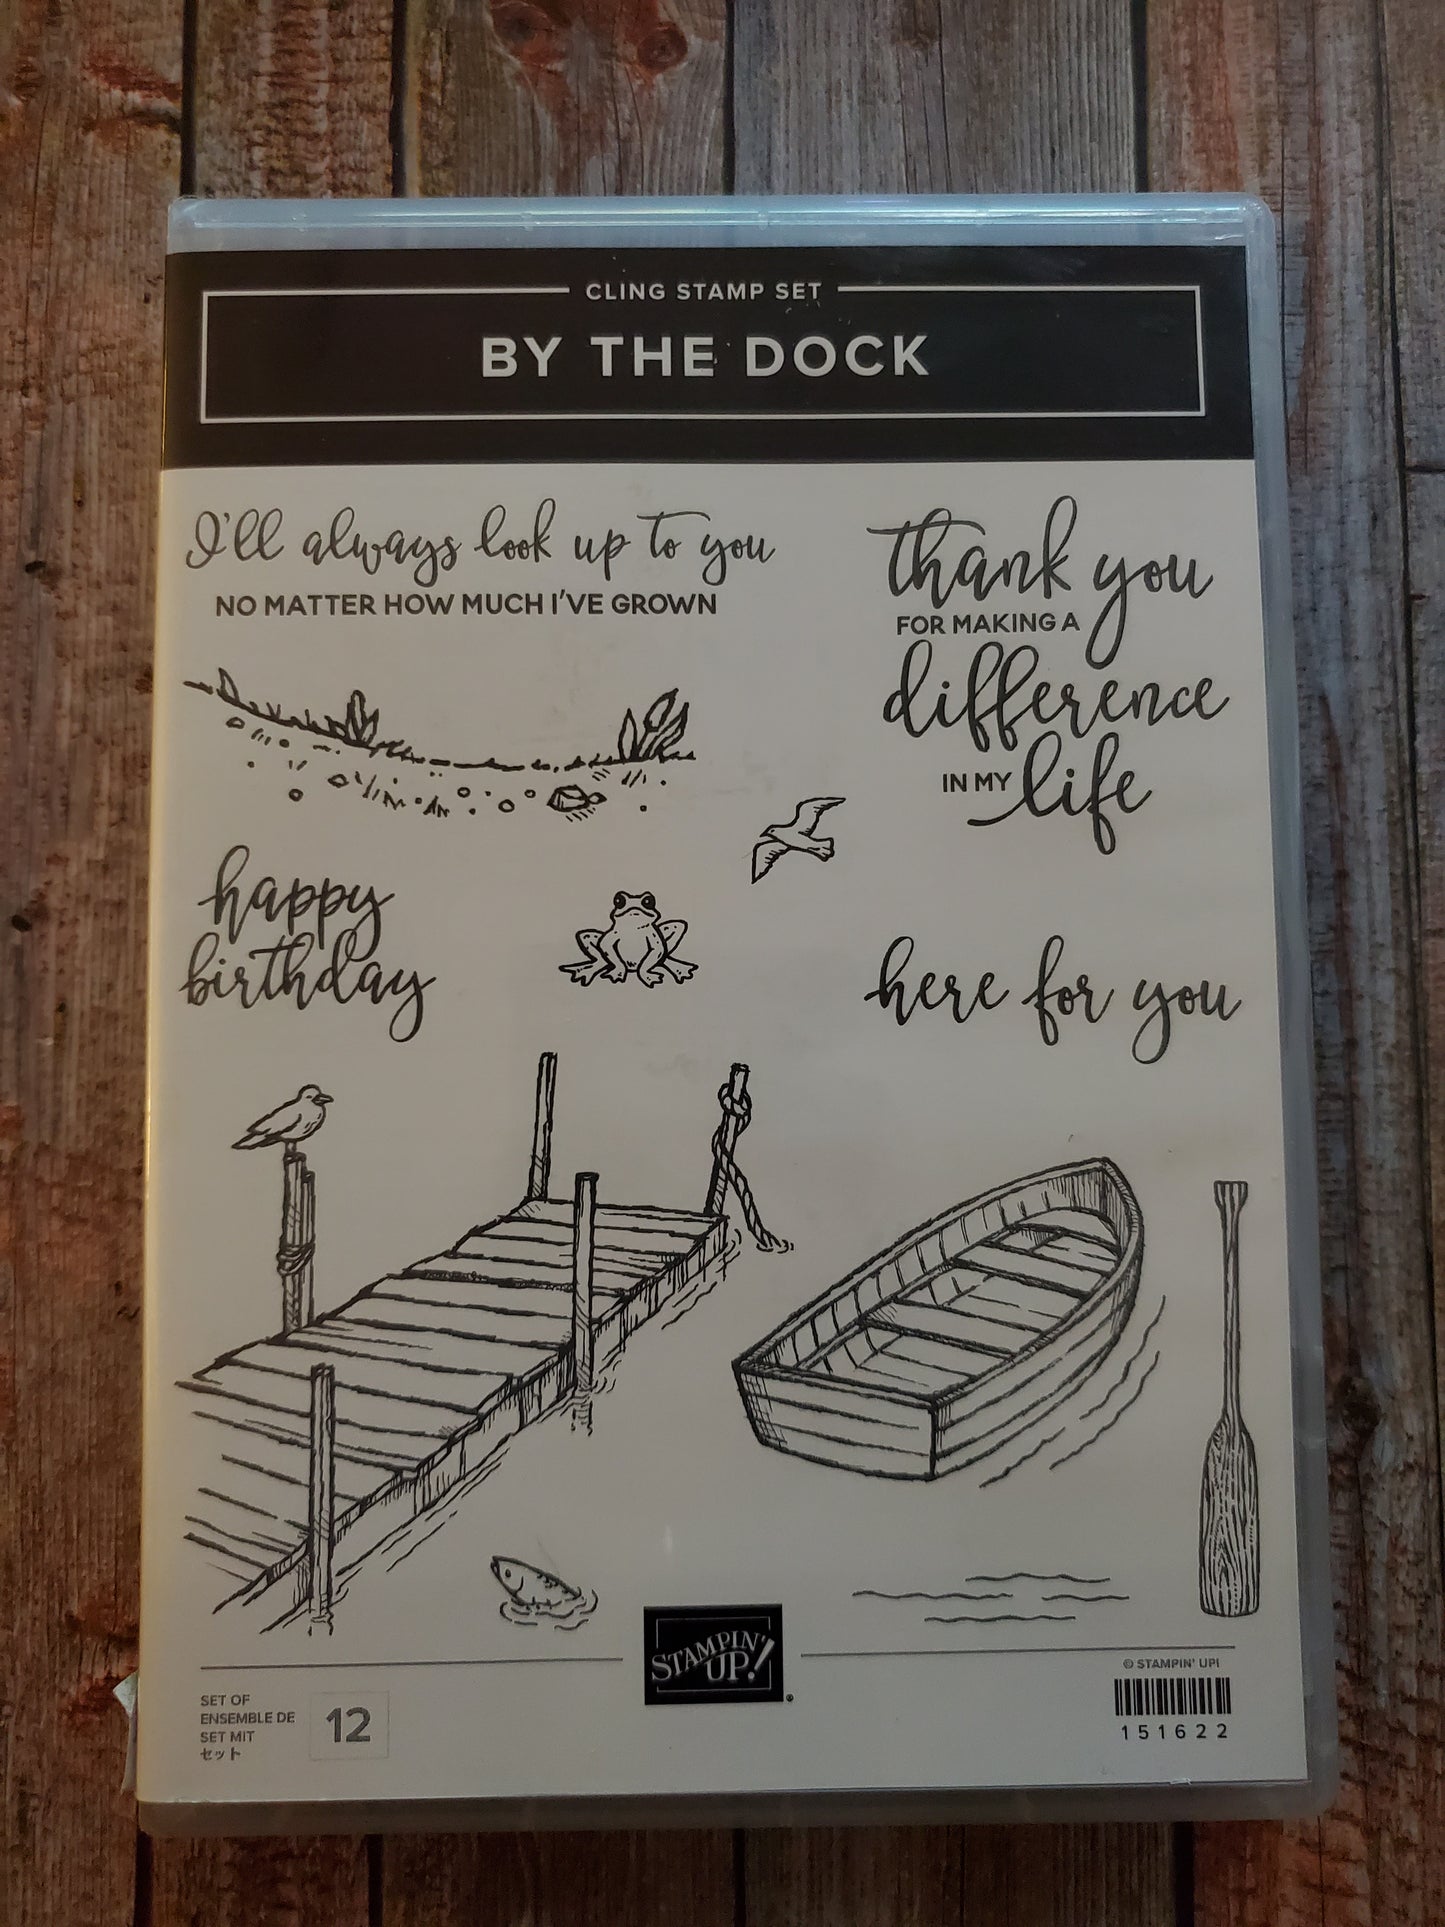 CLING STAMP SET
BY THE DOCK
I'll always look up to you
NO MATTER HOW MUCH I'VE GROWN
thank you
FOR MAKING A
difference
IN MY life
happy
birthday
here for you
STAMPIN'
UP!®
© STAMPIN' UP!
SET OF
ENSEMBLE DE
SET MIT
セット
12
151622